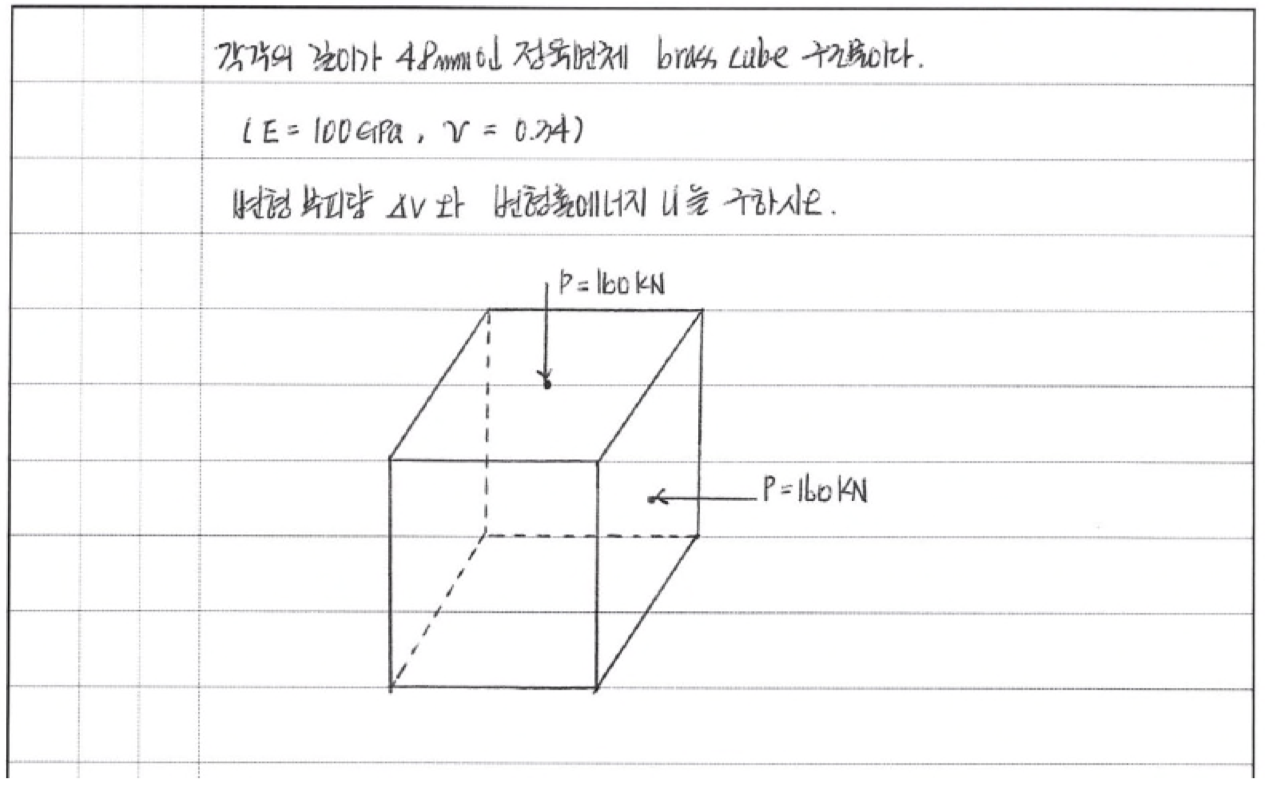 각각의 길이가 48mm인 정육면체 brass cube 구조물이다.
(E = 100GPa, ν = 0.34)
변형 부피량 ΔV 와 변형률에너지 U를 구하시오.
P = 160kN
P = 160kN